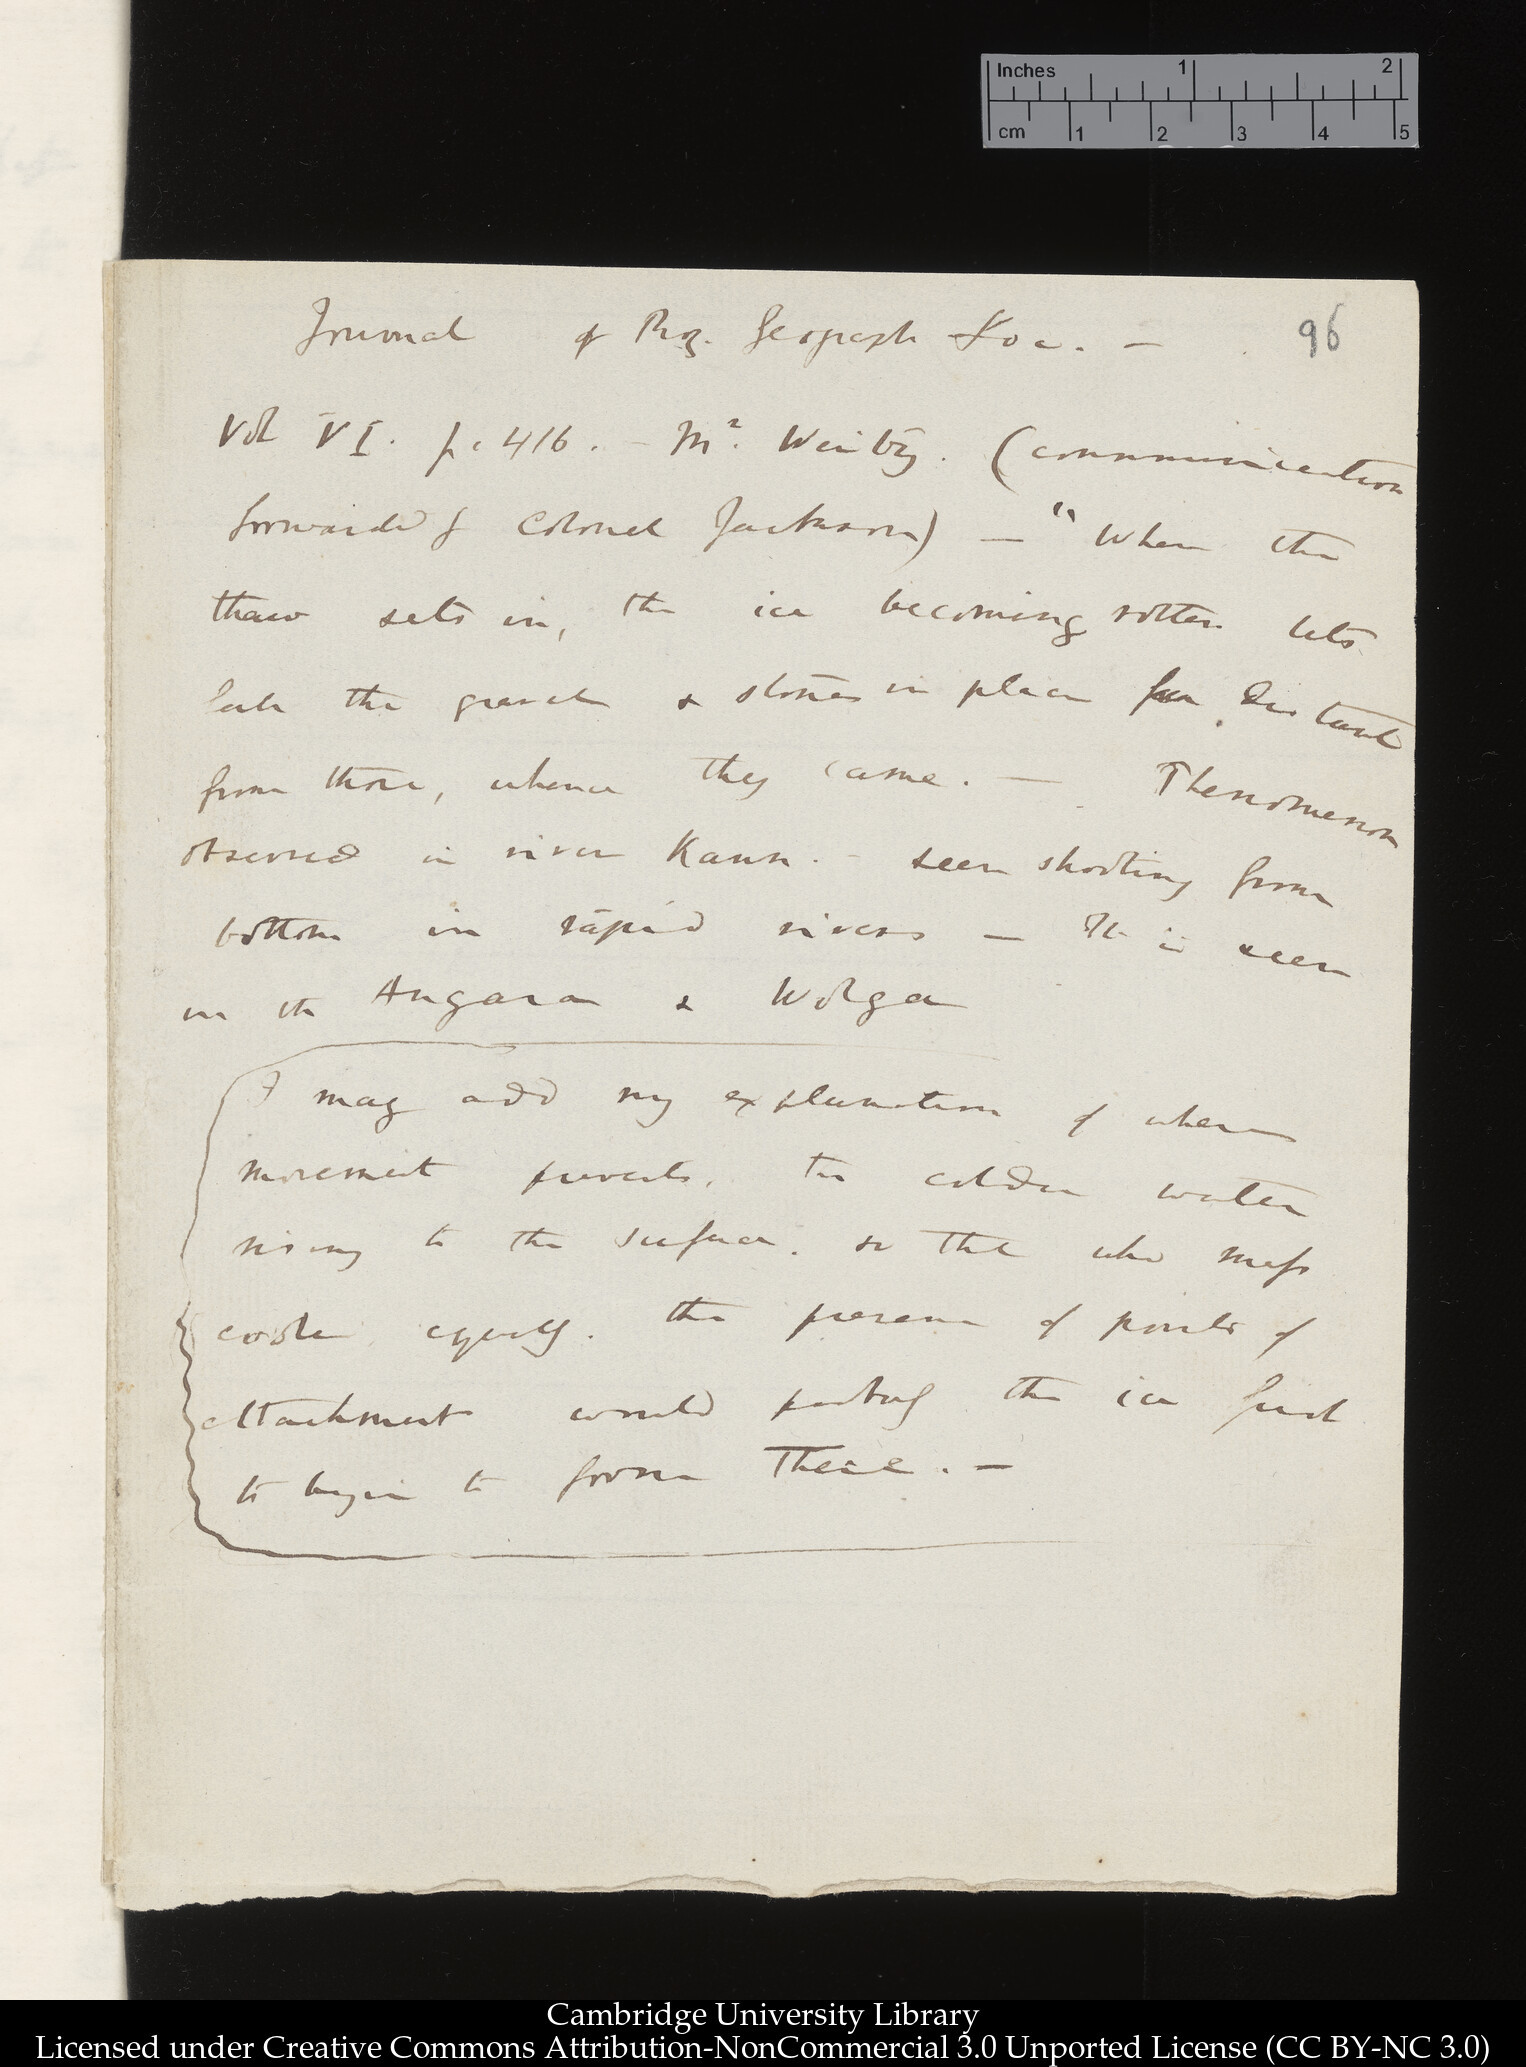 Inches 1 2
cm 1 2 3 4 5
96
Journal of Roy. Geograph Soc. —
Vol VI. p. 416. — Mr. Weitz. (communication
forwarded by Colonel Jackson) — "When the
thaw sets in, the ice becoming rotten lets
fall the gravel & stones in place far distant
from those, whence they came. — Phenomenon
observed in river Kann. — seen shooting from
bottom in rapid rivers — It is seen
in the Angara & Wolga
I may add my explanation of when
movement prevents, the colder water
rising to the surface. so that whole mass
cooled equally. the presence of points of
attachment would probably the ice first
to begin to form there. —
Cambridge University Library
Licensed under Creative Commons Attribution-NonCommercial 3.0 Unported License (CC BY-NC 3.0)